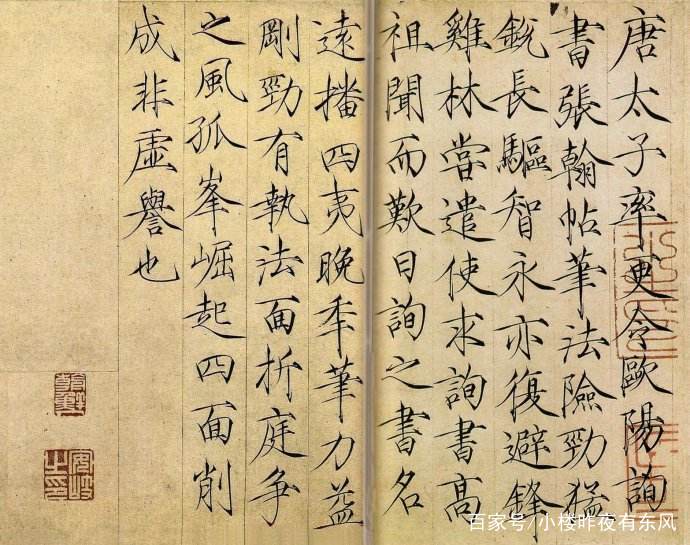 唐太子率更令歐陽詢
書張翰帖筆法險勁猛
銳長驅智永亦復避鋒
雞林嘗遣使求詢書高
祖聞而歎曰詢之書名
遠播四夷晚年筆力益
剛勁有執法面折庭爭
之風孤峯崛起四面削
成非虛譽也
百家号/小楼昨夜有东风